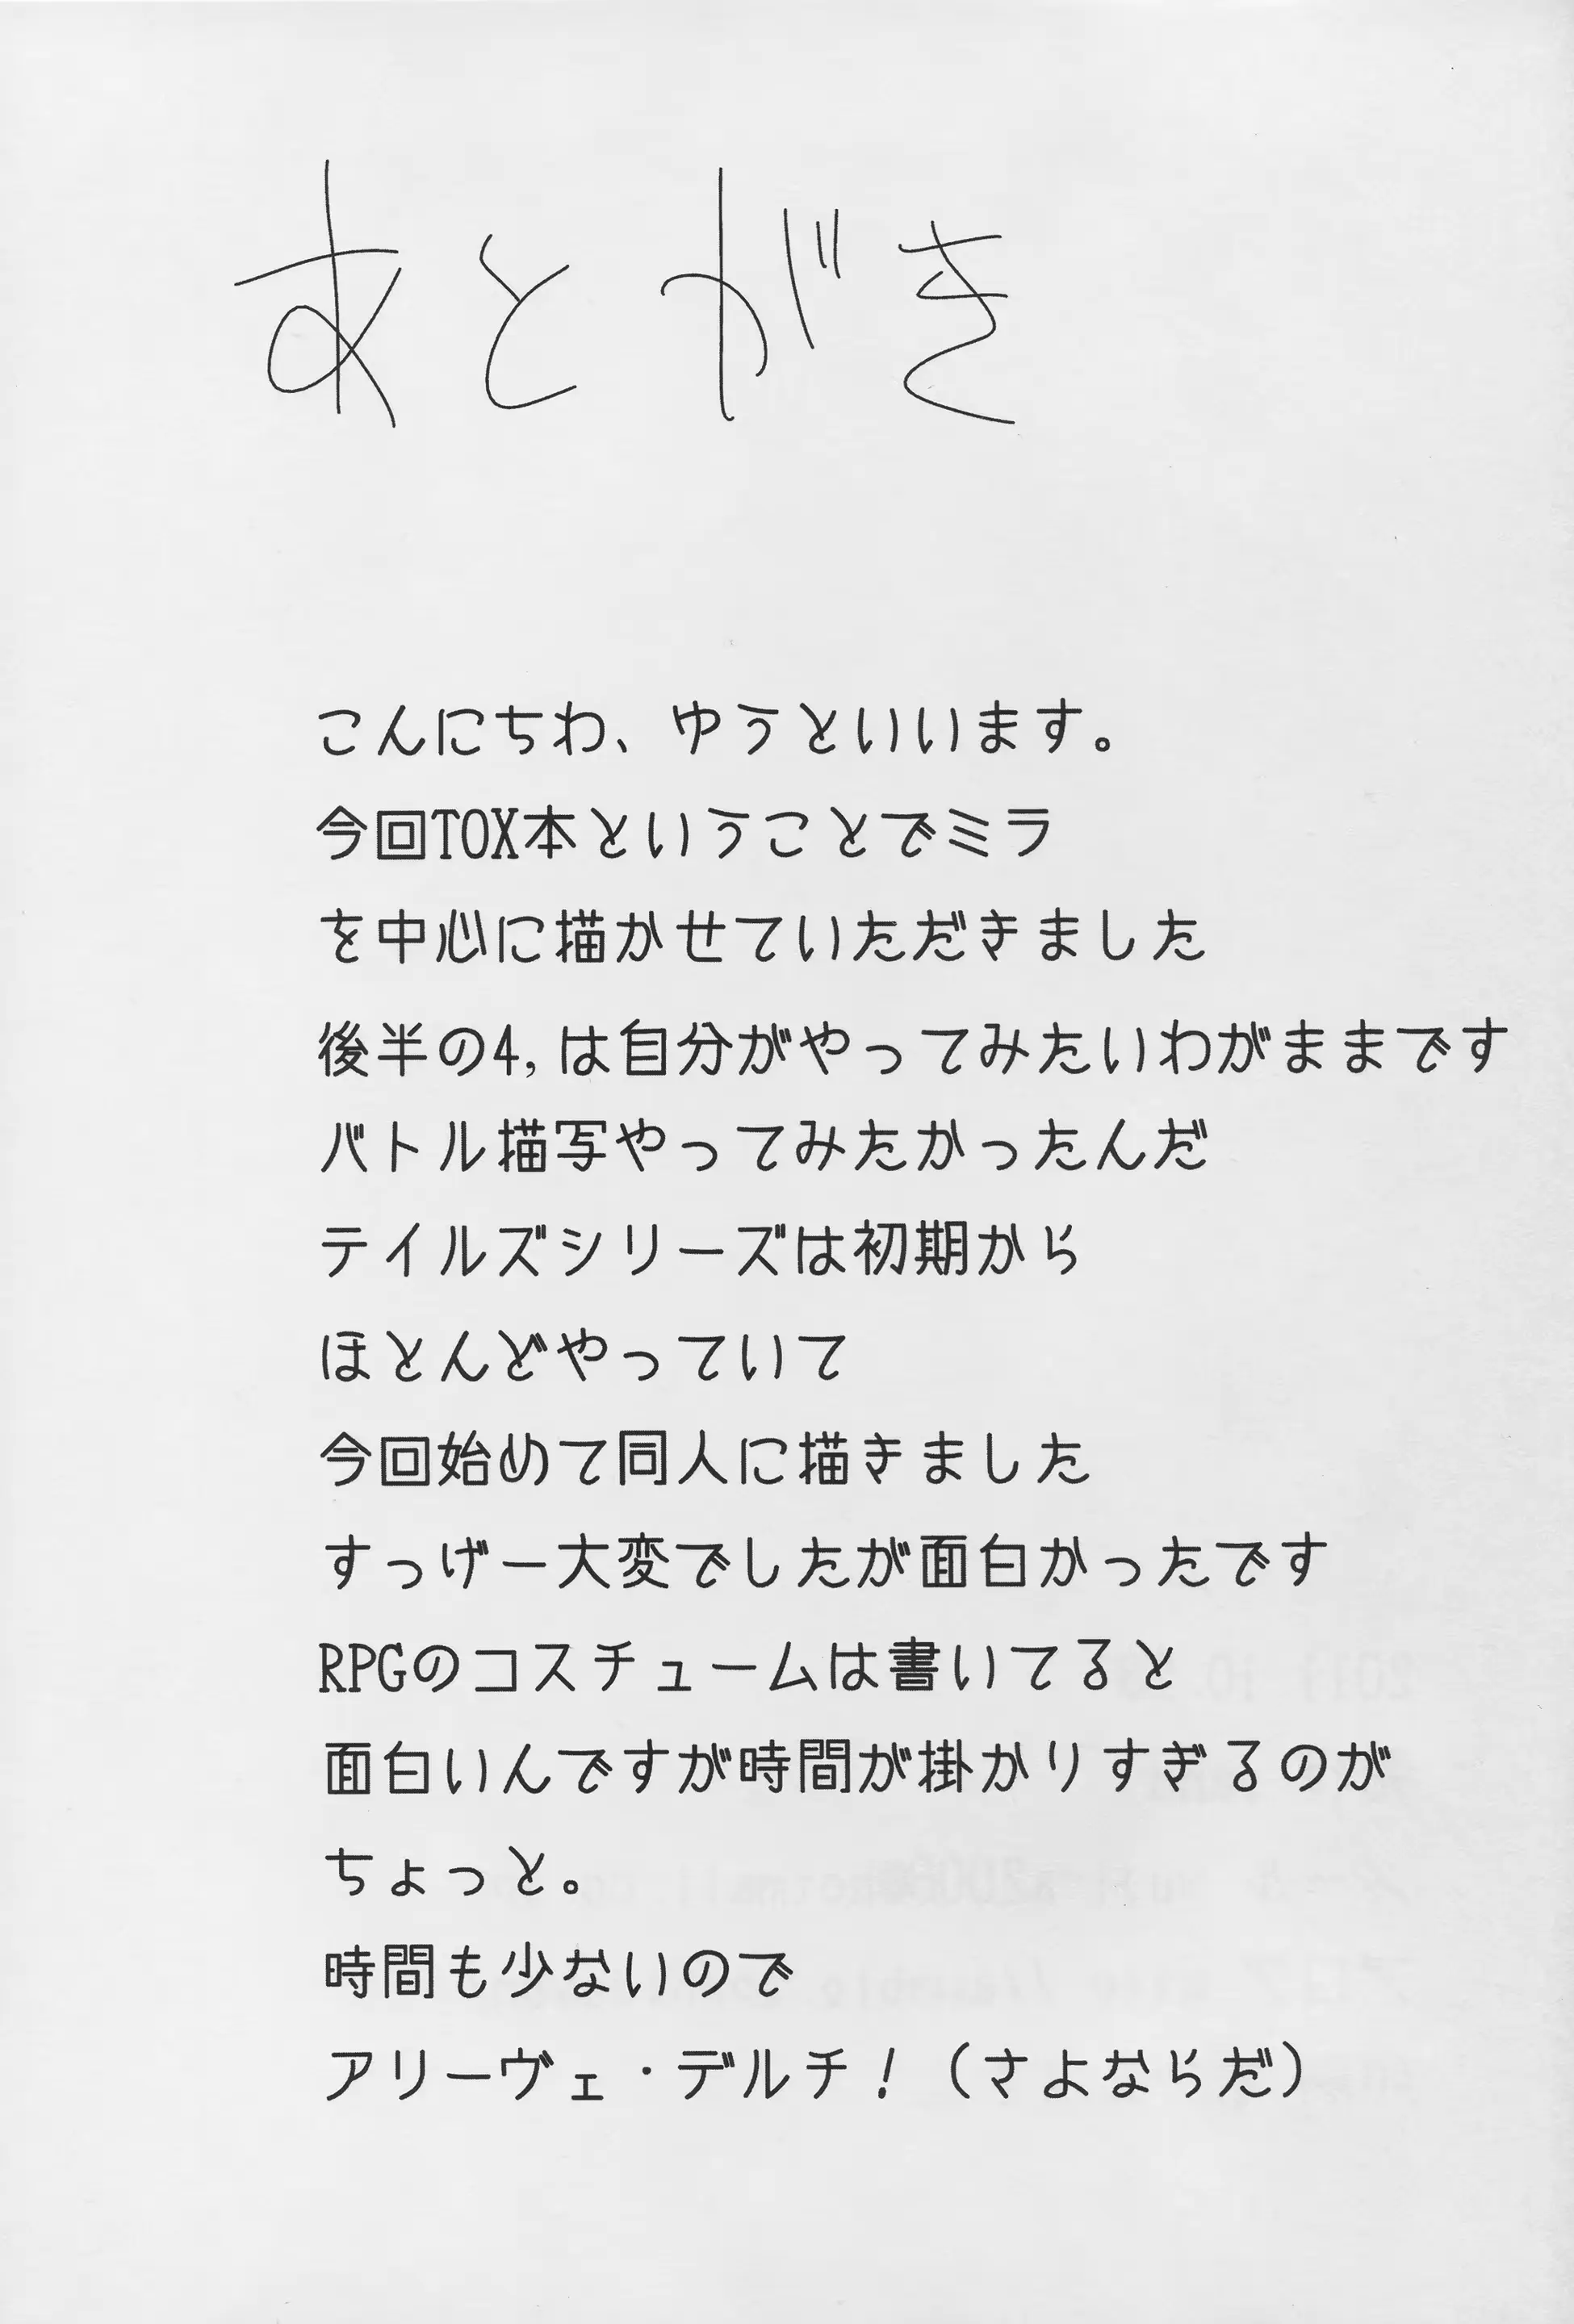 あとがき
こんにちわ、ゆうといいます。
今回TOX本ということでミラ
を中心に描かせていただきました
後半の4,は自分がやってみたいわがままです
バトル描写やってみたかったんだ
テイルズシリーズは初期から
ほとんどやっていて
今回始めて同人に描きました
すっげー大変でしたが面白かったです
RPGのコスチュームは書いてると
面白いんですが時間が掛かりすぎるのが
ちょっと。
時間も少ないので
アリーヴェ・デルチ!(さよならだ)